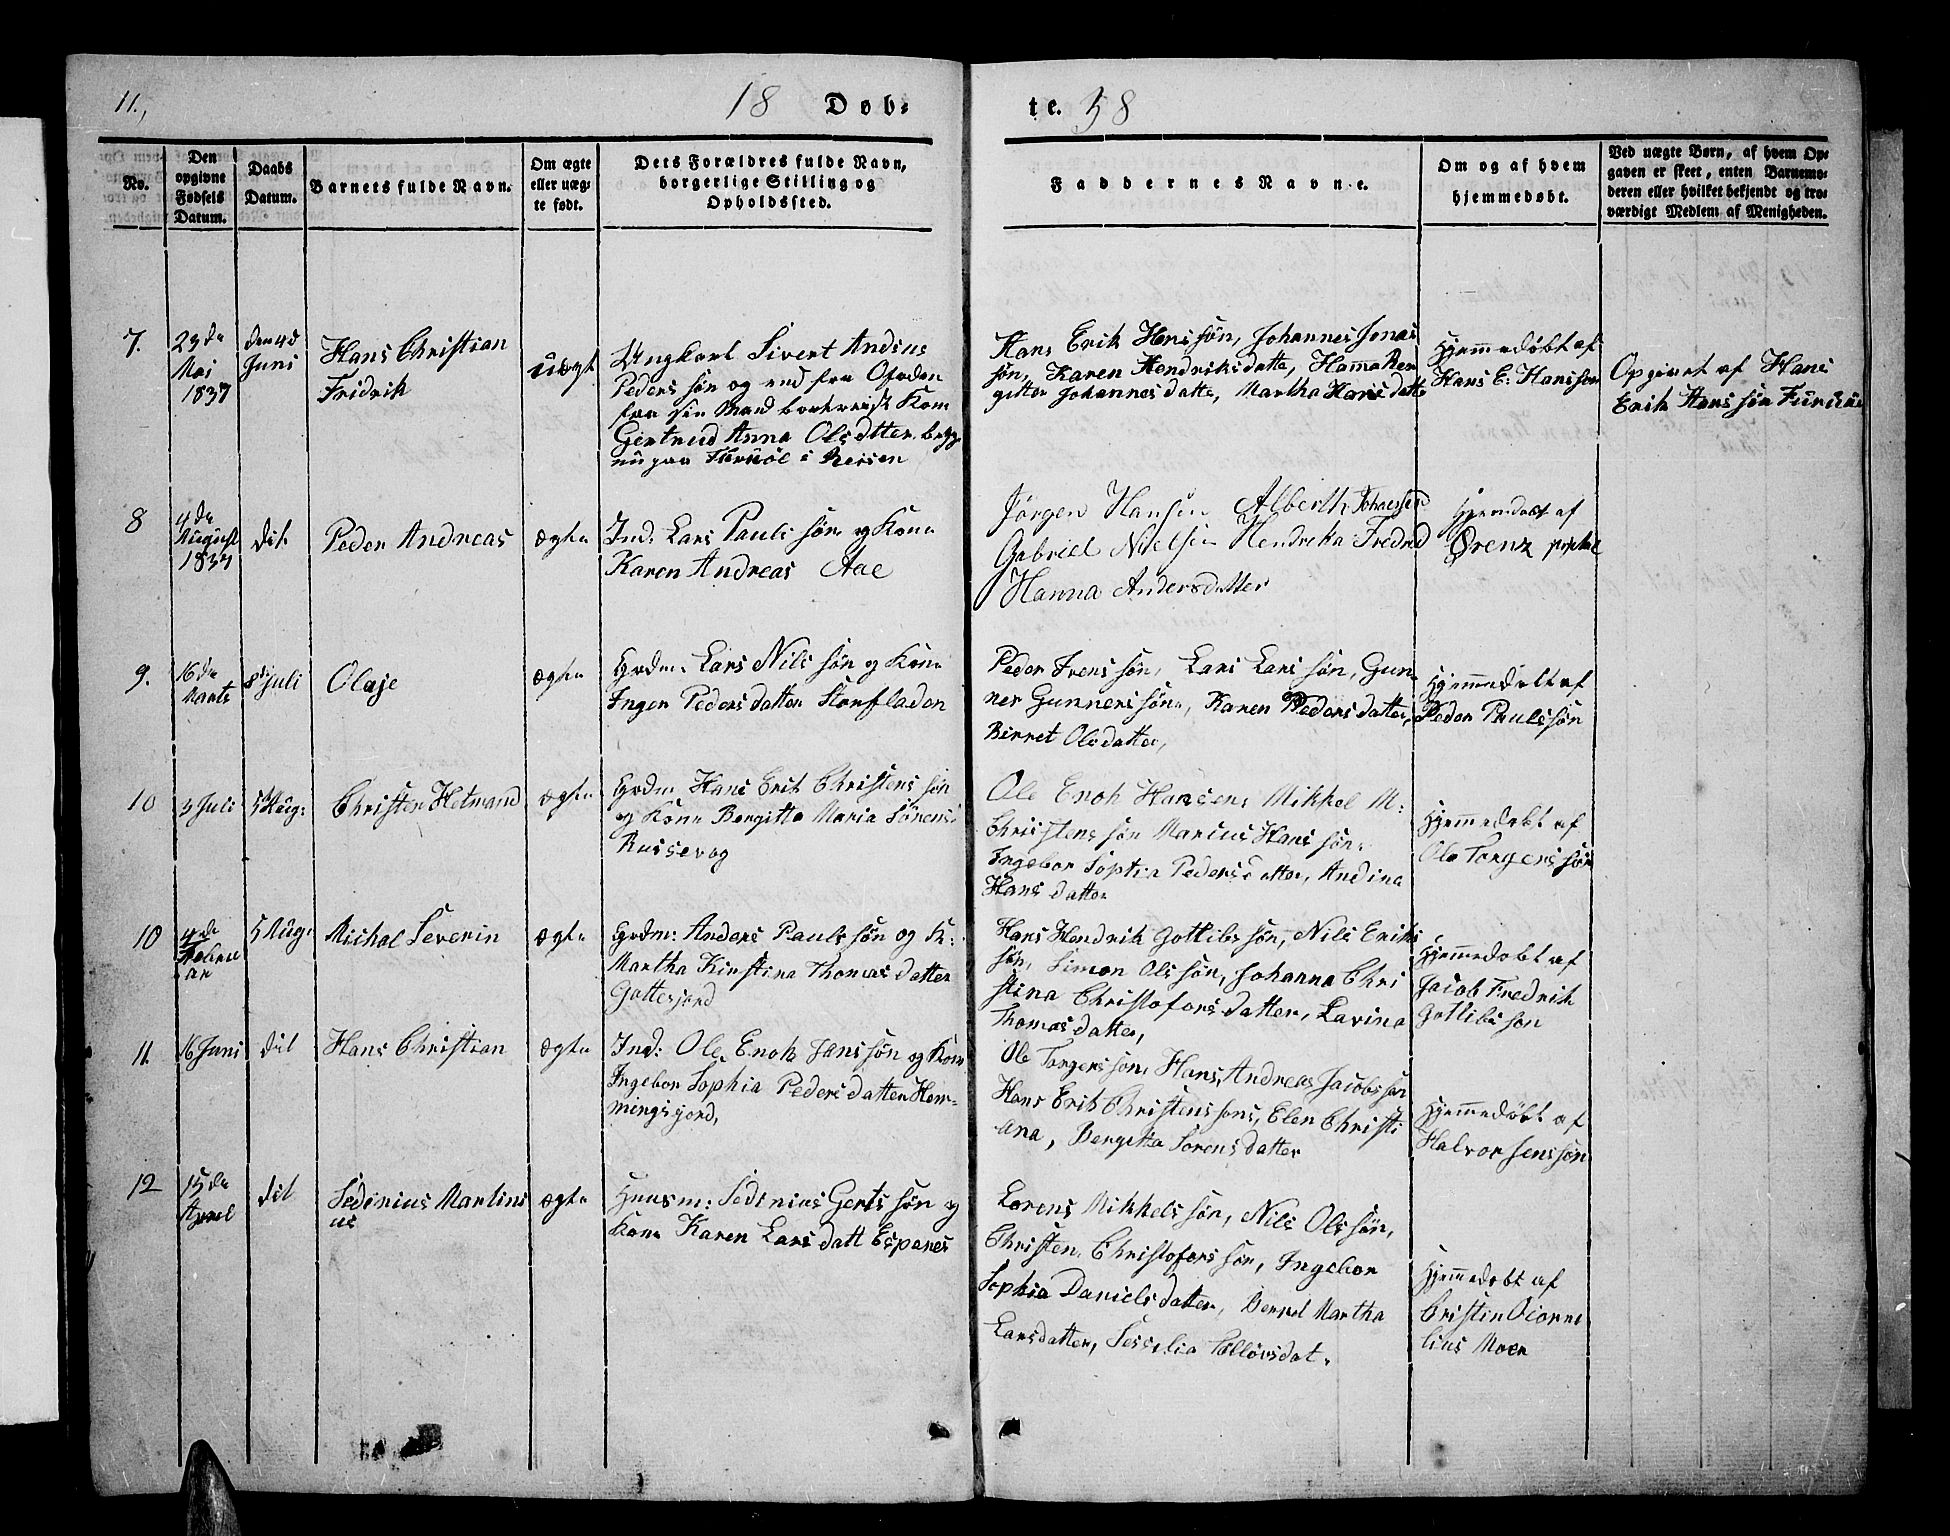 11.,
18 Døb-
te. 58
No.
Den opgivne Fødsels Datum.
Daabs Datum.
Barnets fulde Navn.
Om ægte eller uæg-te født.
Dets Forældres fulde Navn, borgerlige Stilling og Opholdssted.
Faddernes Navne.
Om og af hvem hjemmedøbt.
Ved uægte Børn, af hvem Op-gaven er skeet, enten Barnemo-deren eller hvilket bekjendt og tro-værdigt Medlem af Menigheden.
7.
23de
Mai
1837
den 4d
Juni
Hans Christian
Fridrik
uægt
Ungkarl Sivert Andius
Peders søn og
fra sin Mand Kone
Gertrud Anna Olsdatter
i Reisen
Hans Erik Hans søn, Johannes Jonas
søn, Karen Hendriksdatte, Hanna
Johannesdatte, Martha Hansdatte
Hjemmedøbt af
Hans E: Hanssøn
Opgivet af Hans
Erik Hans søn
8
4de
August
1837
dit.
Peder Andreas
ægte
Ind: Lars Pauls søn og Kone
Karen Andreas Aae
Jørgen Hansen Alberth
Gabriel Nielsen Hendrika Fredred
Hanna Andersdatter
Hjemdøbt af
9.
16de
Marts
8d Juli
Olaje
ægte
Grdm. Lars Nils søn og Kone
Inger Peders datter Storfladen
Peder Ivers søn, Lars Lars søn, Gun-
ner Gunners søn, Karen Peders datter,
Berret Olsdatter,
Hjemmedøbt af
Peder Paulssøn
10
3 Juli
5 Aug:
Christen Hetmand
ægte
Grdm Hans Erik Christens søn
og Kone Bergitta Maria Sørens
Russevog
Ole Enoh Hansens Mikkel M:
Christens søn Marcus Hans søn,
Ingebor Sophia Pedersdatter, Andina
Hans datter
Hjemmedøbt af
Ole Torgers søn
10
4de
Febru
ar
5 Aug:
Michal Severin
ægte
Grdm: Anders Pauls søn og K:
Martha Kirstina Thomas datter
Gottesjord
Hans Hendrik Gottlibs søn, Nils Eriks
søn, Simon Ols søn, Johanna Chri
stina Christofers datter, Lavina
Thomas datter,
Hjemmedøbt af
Jacob Fredrik
Gotlibs søn
11.
16 Juni
dit
Hans Christian
ægte
Ind: Ole Enok Jans søn og Kone
Ingebor Sophia Peders datter Hem-
mingsjord,
Ole Torgers søn, Hans Andreas Jacobs søn
Hans Erik Christens søns, Elen Christi
ana, Bergitta Sorens datter
Hjemmedøbt af
Halvor Jens søn
12
15de
Apriel
dit
Sedinius Martini
us
ægte
Huusm: Sedinius Gerts søn og
Kone Karen Lars datt Espenes
Lorens Mikkels søn, Nils Ols søn,
Christen Christofers søn, Ingebor
Sophia Daniels datter, Berret Martha
Larsdatter, Sescelia
Hjemmedøbt af
Cristin Cornne
lius Moen